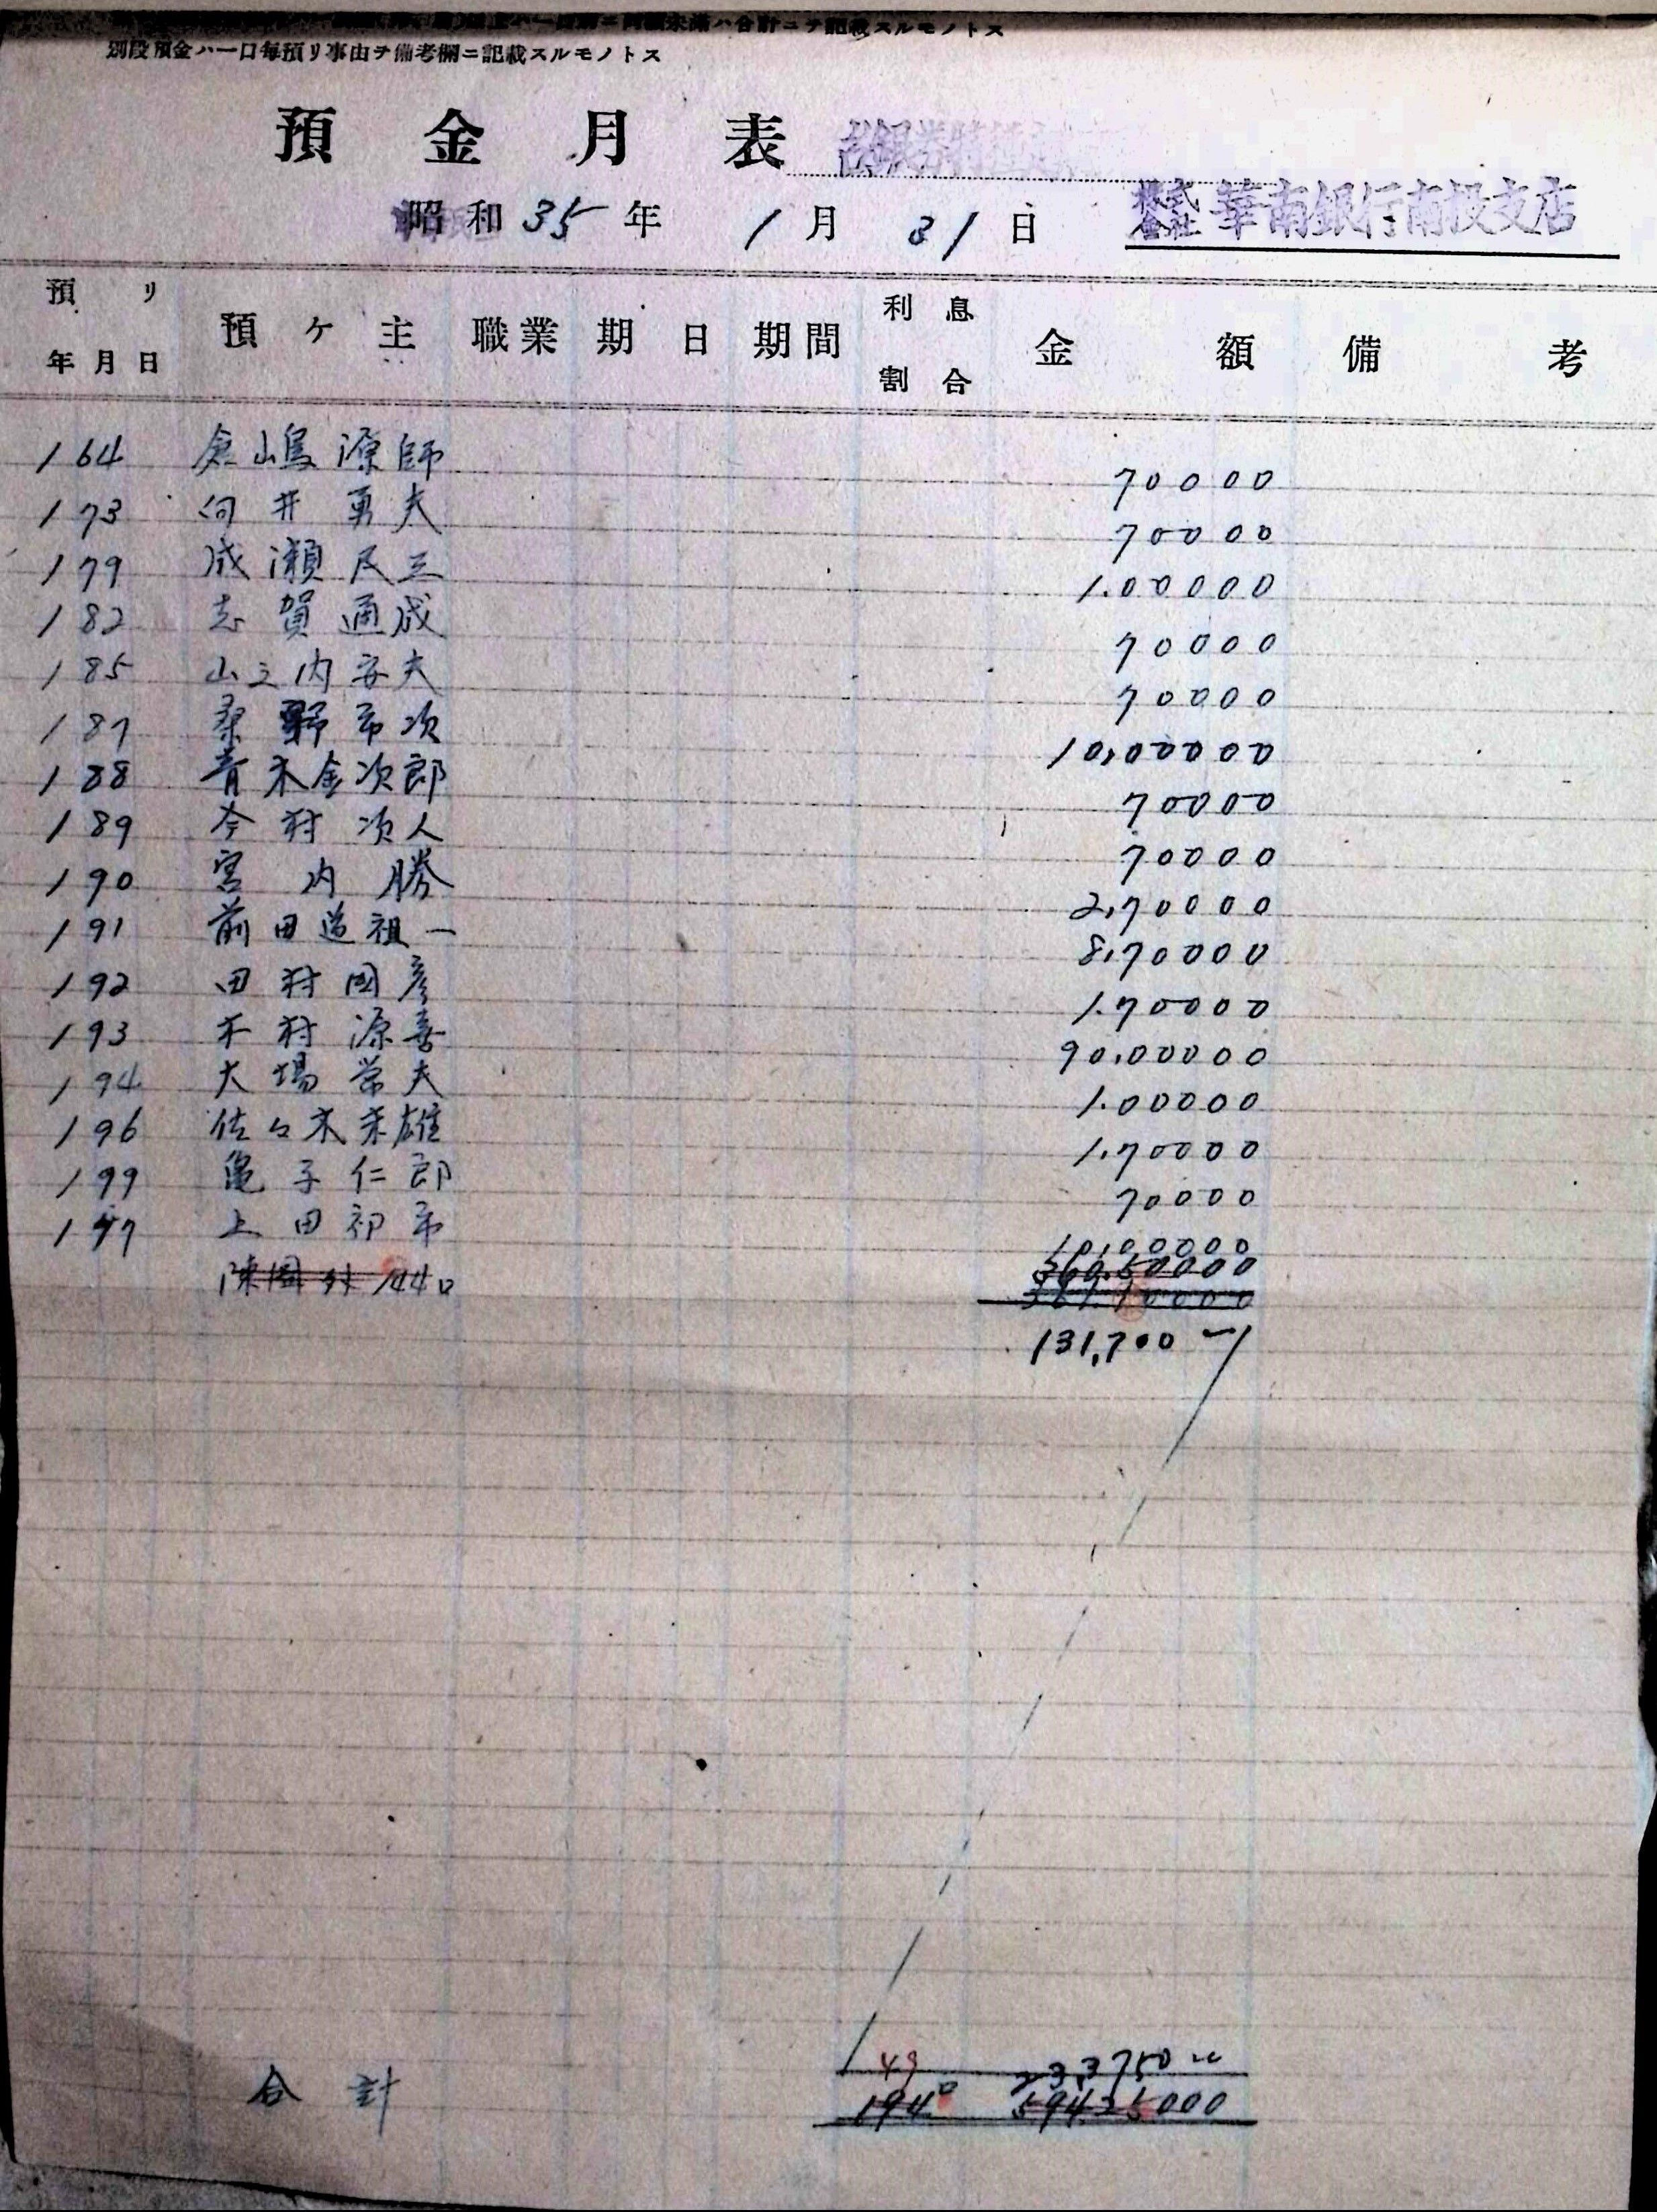 別段預金ハ一口每預リ事由ヲ備考欄ニ記載スルモノトス
預金月表
昭和35年1月31日 株式會社華南銀行南投支店
預リ年月日 預ケ主 職業 期日 期間 利息割合 金額 備考
164 倉嶋源師 70000
173 向井勇夫 70000
179 成瀬良三 1.00000
182 志賀通成 70000
185 山之内安夫 70000
187 桑野市次 10,00000
188 青木金次郎 70000
189 今村次人 70000
190 宮内勝 2,70000
191 前田道祖一 8,70000
192 田村國彦 1.70000
193 木村源喜 90,00000
194 大場常夫 1.00000
196 佐々木末雄 1,70000
199 亀子仁郎 70000
197 上田初市 10,00000
陳圍外144口
131,700
49 23,3750
合計 194口 594,25000